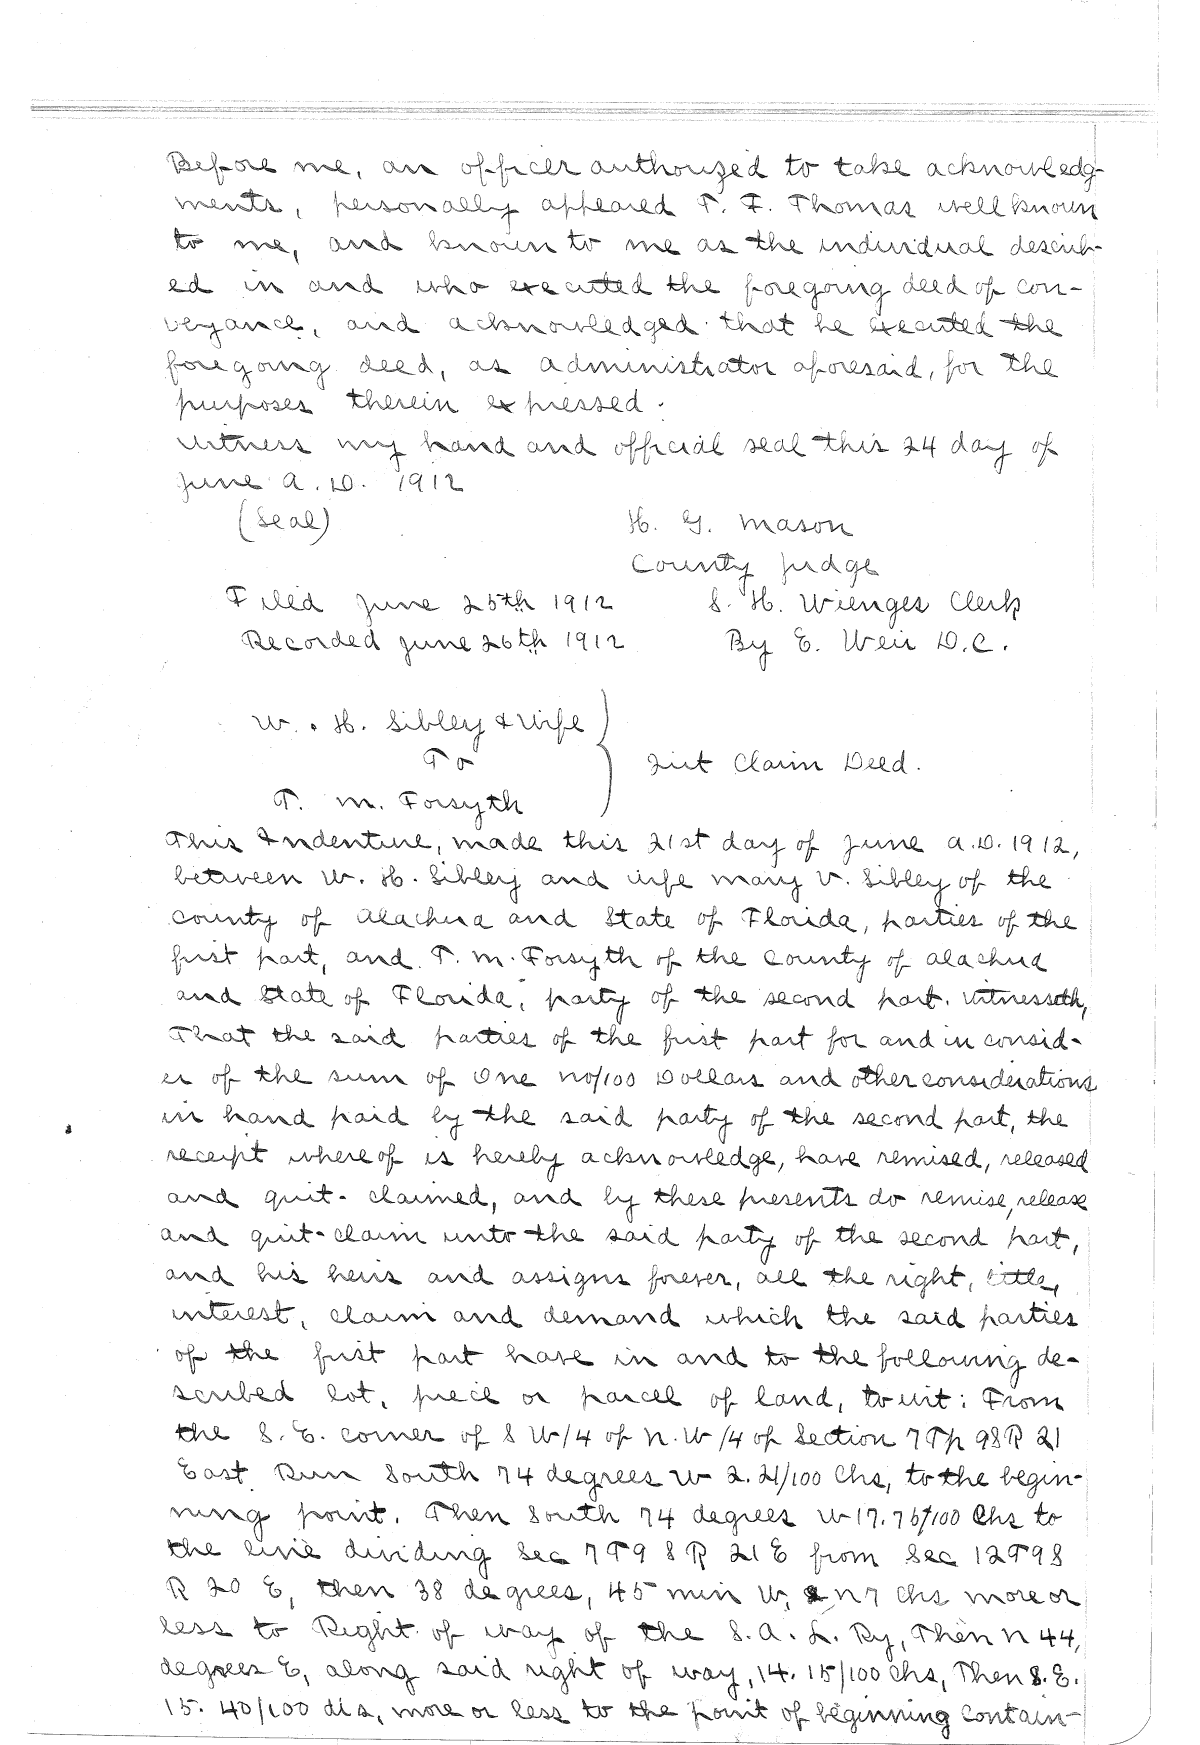 Before me, an officer authorized to take acknowledg-
ments, personally appeared T. F. Thomas well known
to me, and known to me as the individual describ-
ed in and who executed the foregoing deed of con-
veyance, and acknowledged that he executed the
foregoing deed, as administrator aforesaid, for the
purposes therein expressed.
Witness my hand and official seal this 24 day of
June A.D. 1912
(Seal) H. G. Mason
County Judge
Filed June 25th 1912 S. H. Wienges Clerk
Recorded June 26th 1912 By E. Weir D.C.
W. H. Sibley & Wife
To Quit Claim Deed.
T. M. Forsyth
This Indenture, made this 21st day of June A.D. 1912,
between W. H. Sibley and wife Mary V. Sibley of the
County of Alachua and State of Florida, parties of the
first part, and T. M. Forsyth of the County of Alachua
and State of Florida, party of the second part. Witnesseth,
That the said parties of the first part for and in consid-
er of the sum of One no/100 Dollars and other considerations
in hand paid by the said party of the second part, the
receipt whereof is hereby acknowledge, have remised, released
and quit-claimed, and by these presents do remise, release
and quit-claim unto the said party of the second part,
and his heirs and assigns forever, all the right, title,
interest, claim and demand which the said parties
of the first part have in and to the following de-
scribed lot, piece or parcel of land, to wit: From
the S. E. corner of S W/4 of N. W/4 of Section 7 Tp 9S R 21
East Run South 74 degrees W 2.21/100 Chs, to the begin-
ning point. Then South 74 degrees W 17.76/100 Chs to
the line dividing Sec 7 T 9 S R 21 E from Sec 12 T 9 S
R 20 E, then 38 degrees, 45 min W, N 7 Chs more or
less to Right of way of the S. A. L. Ry, Then N 44,
degrees E, along said right of way, 14. 15/100 Chs, Then S. E.
15. 40/100 chs, more or less to the point of beginning contain-